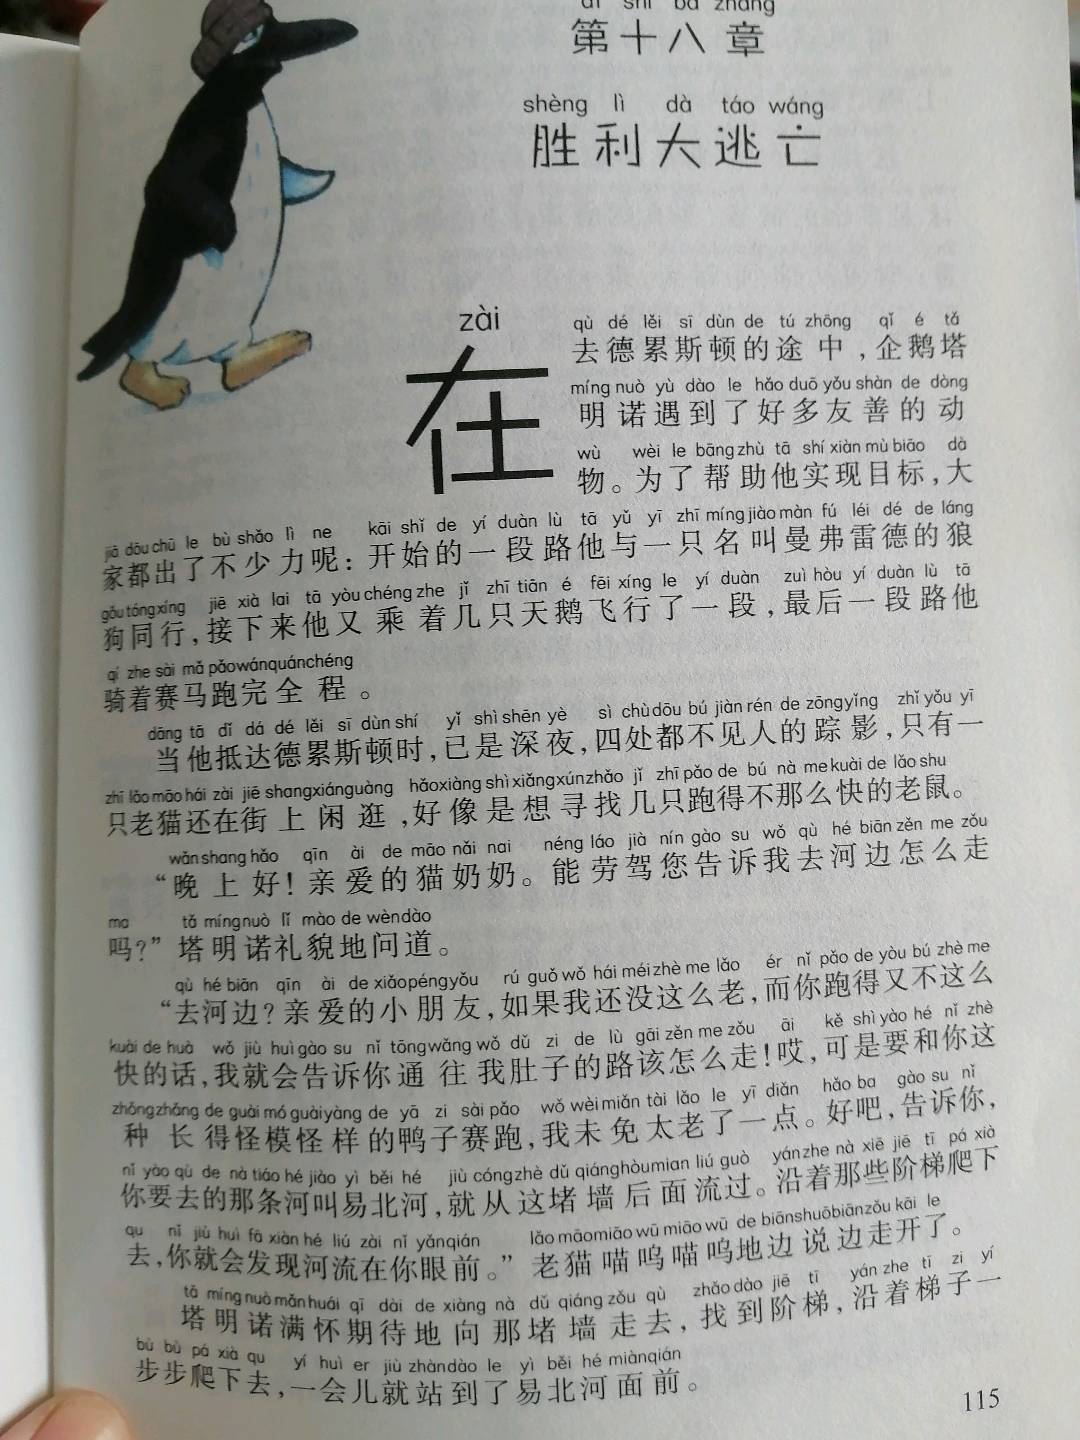 dì shí bā zhāng
第十八章
shèng lì dà táo wáng
胜利大逃亡
zài
在
qù dé lěi sī dùn de tú zhōng qǐ é tǎ
去德累斯顿的途中，企鹅塔
míng nuò yù dào le hǎo duō yǒu shàn de dòng
明诺遇到了好多友善的动
wù wèi le bāng zhù tā shí xiàn mù biāo dà
物。为了帮助他实现目标，大
jiā dōu chū le bù shǎo lì ne kāi shǐ de yí duàn lù tā yǔ yī zhī míng jiào màn fú léi dé de láng
家都出了不少力呢：开始的一段路他与一只名叫曼弗雷德的狼
gǒu tóng xíng jiē xià lai tā yòu chéng zhe jǐ zhī tiān é fēi xíng le yí duàn zuì hòu yí duàn lù tā
狗同行，接下来他又乘着几只天鹅飞行了一段，最后一段路他
qí zhe sài mǎ pǎo wán quán chéng
骑着赛马跑完全程。
dāng tā dǐ dá dé lěi sī dùn shí yǐ shì shēn yè sì chù dōu bú jiàn rén de zōng yǐng zhǐ yǒu yī
当他抵达德累斯顿时，已是深夜，四处都不见人的踪影，只有一
zhī lǎo māo hái zài jiē shang xián guàng hǎo xiàng shì xiǎng xún zhǎo jǐ zhī pǎo de bú nà me kuài de lǎo shu
只老猫还在街上闲逛，好像是想寻找几只跑得不那么快的老鼠。
wǎn shang hǎo qīn ài de māo nǎi nai néng láo jià nín gào su wǒ qù hé biān zěn me zǒu
“晚上好！亲爱的猫奶奶。能劳驾您告诉我去河边怎么走
ma tǎ míng nuò lǐ mào de wèn dào
吗？”塔明诺礼貌地问道。
qù hé biān qīn ài de xiǎo péng yǒu rú guǒ wǒ hái méi zhè me lǎo ér nǐ pǎo de yòu bú zhè me
“去河边？亲爱的小朋友，如果我还没这么老，而你跑得又不这么
kuài de huà wǒ jiù huì gào su nǐ tōng wǎng wǒ dǔ zi de lù gāi zěn me zǒu āi kě shì yào hé nǐ zhè
快的话，我就会告诉你通往我肚子的路该怎么走！哎，可是要和你这
zhǒng zhǎng de guài mó guài yàng de yā zi sài pǎo wǒ wèi miǎn tài lǎo le yī diǎn hǎo ba gào su nǐ
种长得怪模怪样的鸭子赛跑，我未免太老了一点。好吧，告诉你，
nǐ yào qù de nà tiáo hé jiào yì běi hé jiù cóng zhè dǔ qiáng hòu mian liú guò yán zhe nà xiē jiē tī pá xià
你要去的那条河叫易北河，就从这堵墙后面流过。沿着那些阶梯爬下
qu nǐ jiù huì fā xiàn hé liú zài nǐ yǎn qián lǎo māo miāo wū miāo wū de biān shuō biān zǒu kāi le
去，你就会发现河流在你眼前。”老猫喵呜喵呜地边说边走开了。
tǎ míng nuò mǎn huái qī dài de xiàng nà dǔ qiáng zǒu qù zhǎo dào jiē tī yán zhe tī zi yí
塔明诺满怀期待地向那堵墙走去，找到阶梯，沿着梯子一
bù bù pá xià qu yí huì er jiù zhàn dào le yì běi hé miàn qián
步步爬下去，一会儿就站到了易北河面前。
115